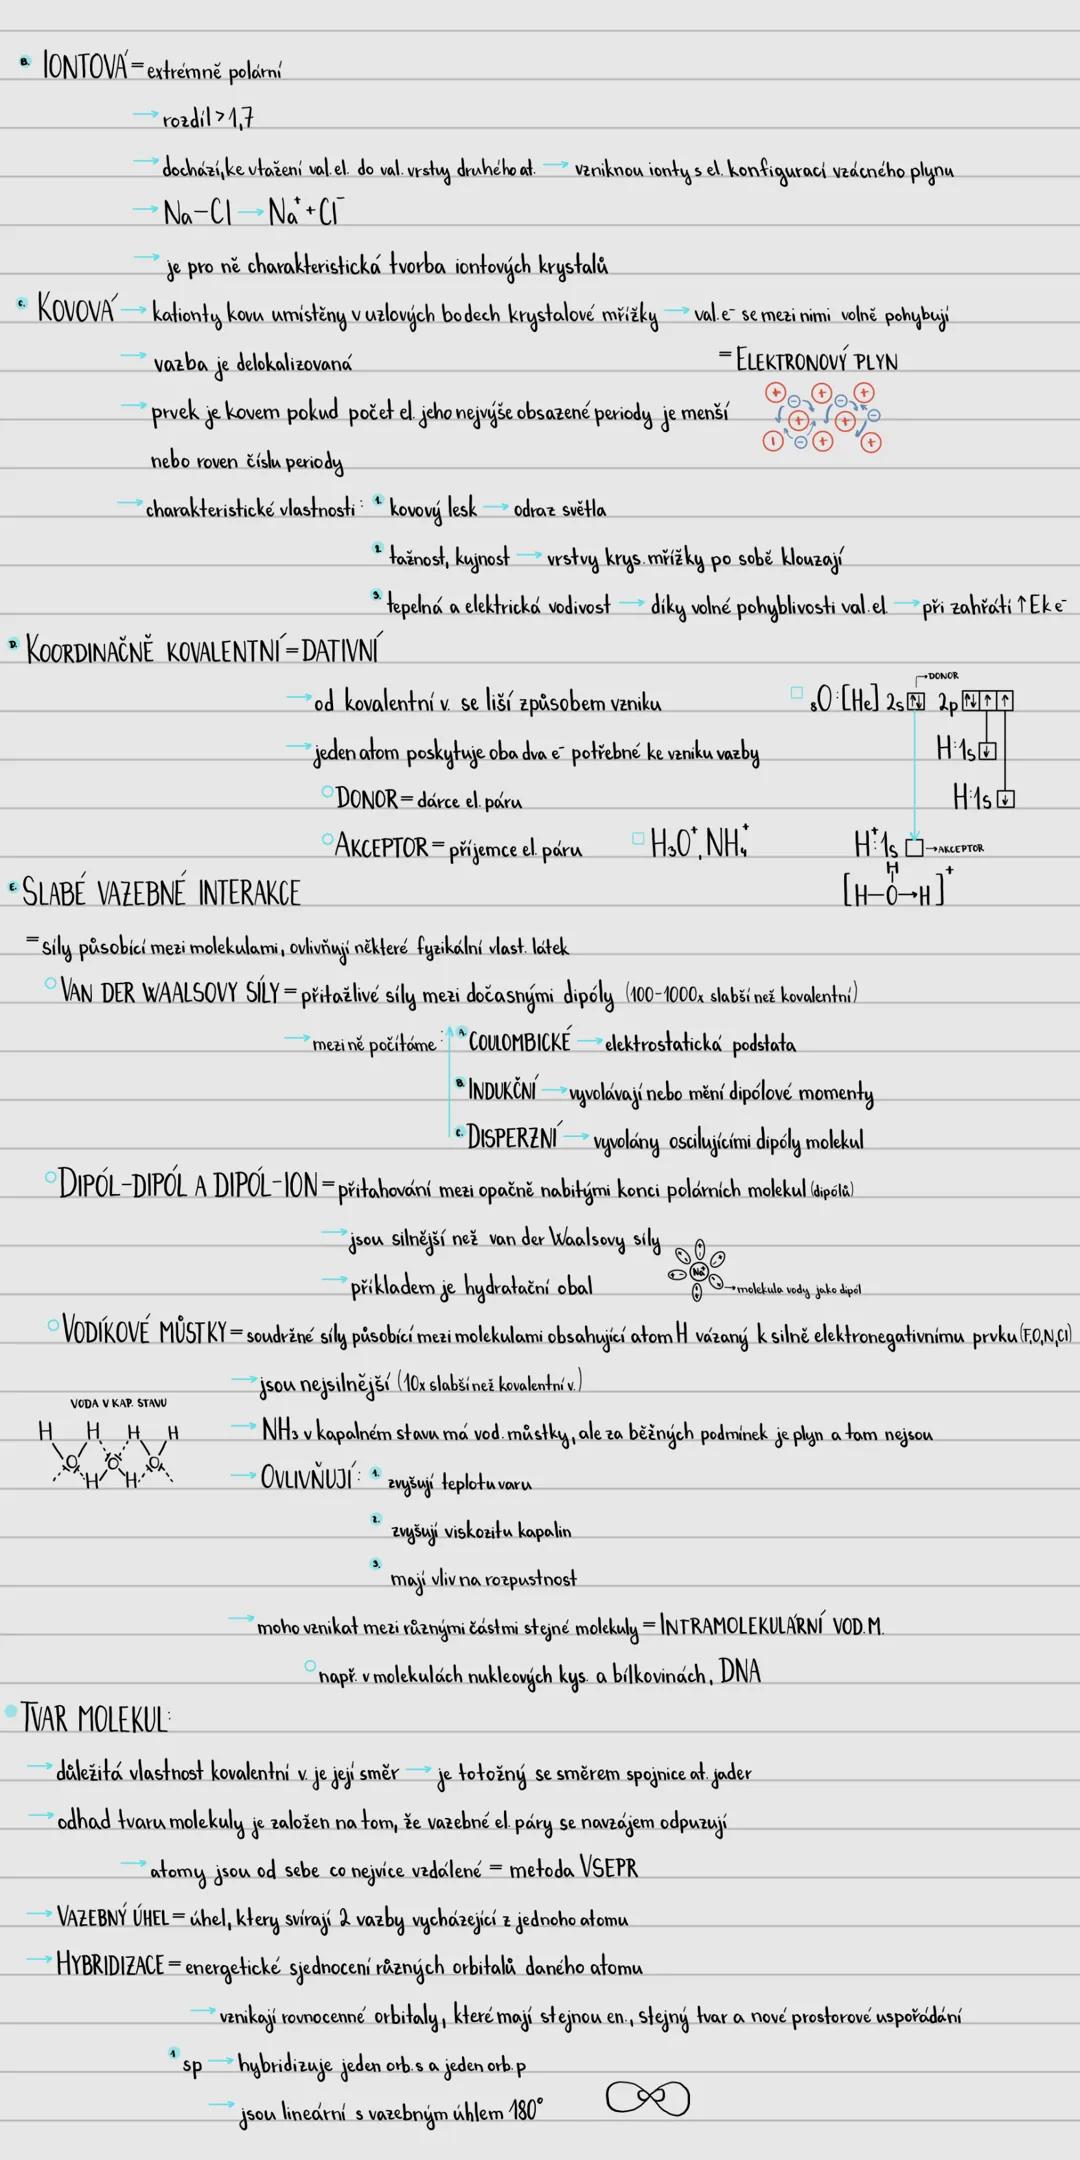 B. IONTOVÁ = extrémně polární
→ rozdíl > 1,7
→ dochází, ke vtažení val. el. do val. vrstvy druhého at. → vzniknou ionty s el. konfigurací vzácného plynu
→ Na-Cl → Na⁺ + Cl⁻
→ je pro ně charakteristická tvorba iontových krystalů
C. KOVOVÁ → kationty kovu umístěny v uzlových bodech krystalové mřížky → val. e⁻ se mezi nimi volně pohybují
→ vazba je delokalizovaná = ELEKTRONOVÝ PLYN
→ prvek je kovem pokud počet el. jeho nejvýše obsazené periody je menší
nebo roven číslu periody
→ charakteristické vlastnosti: 1. kovový lesk → odraz světla
2. tažnost, kujnost → vrstvy krys. mřížky po sobě klouzají
3. tepelná a elektrická vodivost → díky volné pohyblivosti val. el. → při zahřátí ↑ Ek e⁻
D. KOORDINAČNĚ KOVALENTNÍ = DATIVNÍ
→ DONOR
→ od kovalentní v. se liší způsobem vzniku ₈O: [He] 2s ↑↓ 2p ↑↓ ↑ ↑
→ jeden atom poskytuje oba dva e⁻ potřebné ke vzniku vazby H: 1s ↓
DONOR = dárce el. páru H: 1s ↓
AKCEPTOR = příjemce el. páru H₃O⁺, NH₄⁺ H⁺: 1s □ → AKCEPTOR
H
[H-O→H]⁺
E. SLABÉ VAZEBNÉ INTERAKCE
= síly působící mezi molekulami, ovlivňují některé fyzikální vlast. látek
VAN DER WAALSOVY SÍLY = přitažlivé síly mezi dočasnými dipóly (100-1000x slabší než kovalentní)
→ mezi ně počítáme: A. COULOMBICKÉ → elektrostatická podstata
B. INDUKČNÍ → vyvolávají nebo mění dipólové momenty
C. DISPERZNÍ → vyvolány oscilujícími dipóly molekul
DIPÓL-DIPÓL A DIPÓL-ION = přitahování mezi opačně nabitými konci polárních molekul (dipólů)
→ jsou silnější než van der Waalsovy síly
→ příkladem je hydratační obal Na⁺ → molekula vody jako dipól
VODÍKOVÉ MŮSTKY = soudržné síly působící mezi molekulami obsahující atom H vázaný k silně elektronegativnímu prvku (F,O,N,Cl)
→ jsou nejsilnější (10x slabší než kovalentní v.)
VODA V KAP. STAVU
H H H H
O O O
H H
→ NH₃ v kapalném stavu má vod. můstky, ale za běžných podmínek je plyn a tam nejsou
→ OVLIVŇUJÍ: 1. zvyšují teplotu varu
2. zvyšují viskozitu kapalin
3. mají vliv na rozpustnost
→ moho vznikat mezi různými částmi stejné molekuly = INTRAMOLEKULÁRNÍ VOD. M.
např. v molekulách nukleových kys. a bílkovinách, DNA
TVAR MOLEKUL:
→ důležitá vlastnost kovalentní v. je její směr → je totožný se směrem spojnice at. jader
→ odhad tvaru molekuly je založen na tom, že vazebné el. páry se navzájem odpuzují
→ atomy jsou od sebe co nejvíce vzdálené = metoda VSEPR
→ VAZEBNÝ ÚHEL = úhel, ktery svírají 2 vazby vycházející z jednoho atomu
→ HYBRIDIZACE = energetické sjednocení různých orbitalů daného atomu
→ vznikají rovnocenné orbitaly, které mají stejnou en., stejný tvar a nové prostorové uspořádání
1 sp → hybridizuje jeden orb. s a jeden orb. p
→ jsou lineární s vazebným úhlem 180°